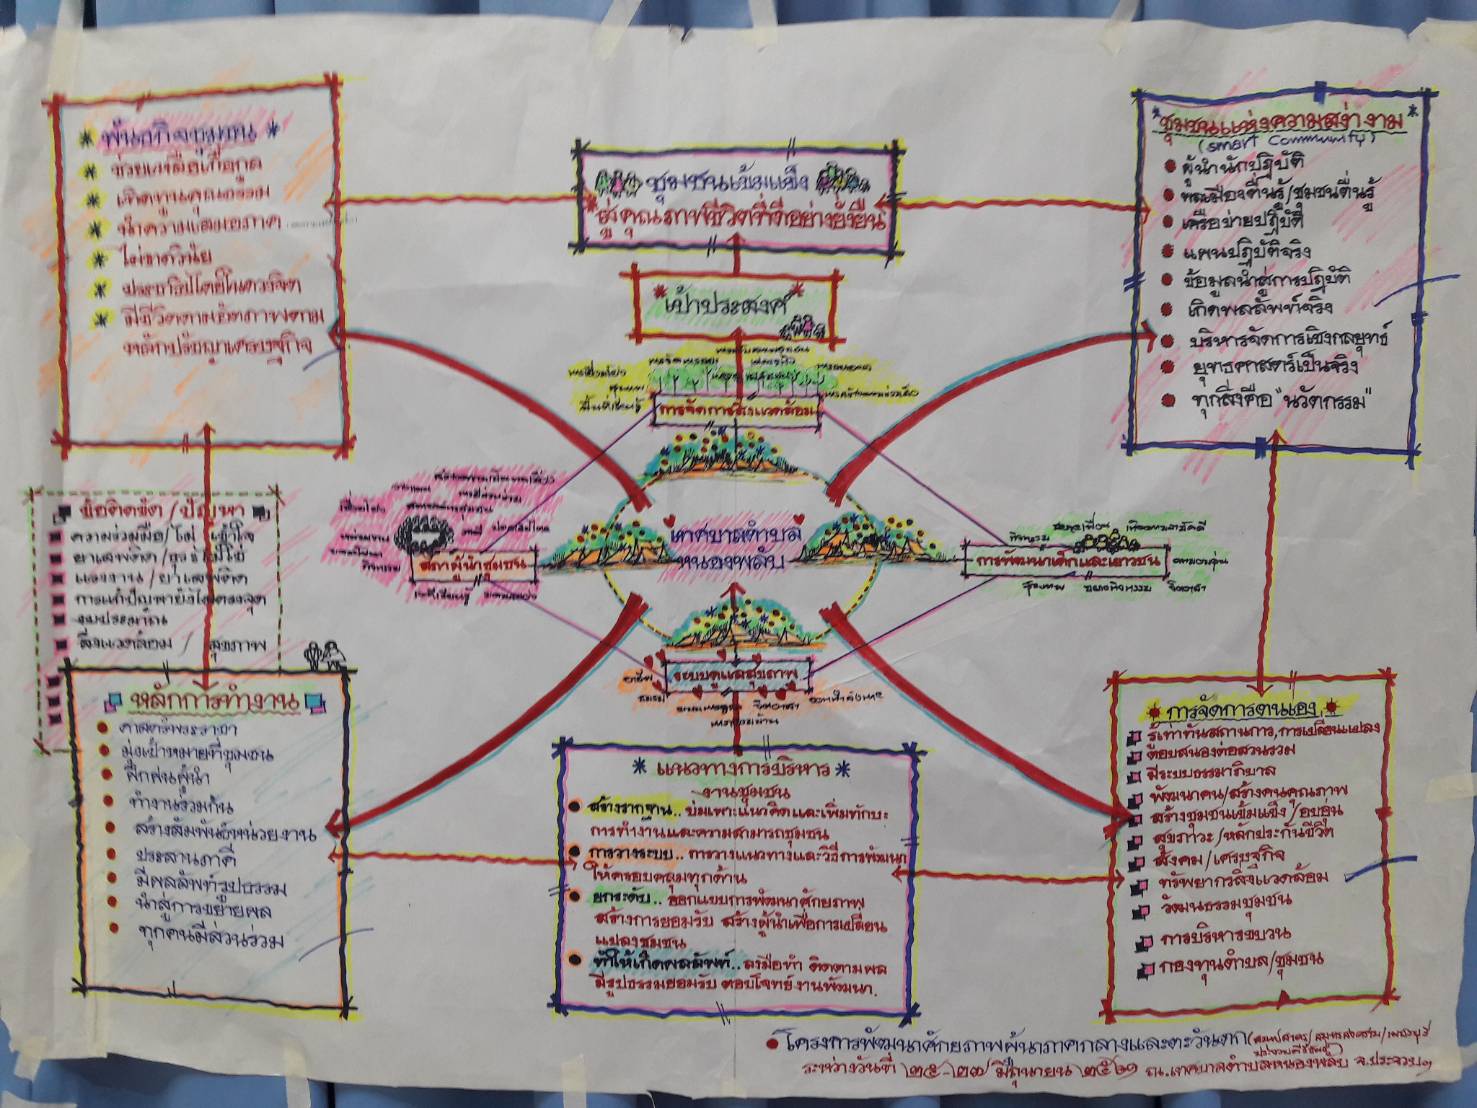 พันธกิจชุมชน
ช่วยเหลือเกื้อกูล
เกิดทุนคุณธรรม
นำความเสมอภาค
ไม่ขาดวินัย
ประชาธิปไตย
มีชีวิตตามอัตภาพตาม
หลักปรัชญาเศรษฐกิจ
ชุมชนเข้มแข็ง
สู่คุณภาพชีวิตที่ดีอย่างยั่งยืน
เป้าประสงค์
ชุมชนแห่งความสง่างาม
(smart community)
ผู้นำนักปฏิบัติ
พลเมืองตื่นรู้/ชุมชนตื่นรู้
เครือข่ายปฏิบัติ
แผนปฏิบัติจริง
ข้อมูลนำสู่การปฏิบัติ
เกิดผลลัพท์จริง
บริหารจัดการเชิงกลยุทธ์
ยุทธศาสตร์เป็นจริง
ทุกสิ่งคือ "นวัตกรรม"
การจัดการสิ่งแวดล้อม
เทศบาลตำบล
หนองพลับ
สภาผู้นำชุมชน
การพัฒนาเด็กและเยาวชน
กิจกรรม
จิตอาสา
ระบบดูแลสุขภาพ
ข้อติดขัด/ปัญหา
ความร่วมมือ/ไม่เข้าใจ
ยาเสพติด
แรงงาน/ยาเสพติด
การแก้ปัญหายังไม่ตรงจุด
งบประมาณ
สิ่งแวดล้อม/สุขภาพ
หลักการทำงาน
ศาสตร์พระราชา
มุ่งเป้าหมายที่ชุมชน
ฝึกฝนผู้นำ
ทำงานร่วมกัน
สร้างสัมพันธ์หน่วยงาน
ประสานภาคี
มีผลลัพท์รูปธรรม
นำสู่การขยายผล
ทุกคนมีส่วนร่วม
แนวทางการบริหาร
งานชุมชน
สร้างรากฐาน.. บ่มเพาะแนวคิดและเพิ่มทักษะ
การทำงานและความสามารถชุมชน
การวางระบบ.. การวางแนวทางและวิธีการพัฒนา
ให้ครอบคลุมทุกด้าน
ยกระดับ.. ออกแบบการพัฒนาศักยภาพ
สร้างการยอมรับ สร้างผู้นำเพื่อการเปลี่ยน
แปลงชุมชน
ทำให้เกิดผลลัพท์.. ลงมือทำ ติดตามผล
มีรูปธรรมยอมรับ ตอบโจทย์งานพัฒนา.
การจัดการตนเอง
รู้เท่าทันสถานการ,การเปลี่ยนแปลง
ตอบสนองต่อส่วนรวม
มีระบบธรรมาภิบาล
พัฒนาคน/สร้างคนคุณภาพ
สร้างชุมชนเข้มแข็ง/อบอุ่น
สุขภาวะ/หลักประกันชีวิต
สังคม/เศรษฐกิจ
ทรัพยากรสิ่งแวดล้อม
วัฒนธรรมชุมชน
การบริหารขบวน
กองทุนตำบล/ชุมชน
โครงการพัฒนาศักยภาพผู้นำภาคกลางและตะวันตก (สมุทรสาคร/สมุทรสงคราม/เพชรบุรี
ประจวบคีรีขันธ์)
ระหว่างวันที่ ๒๕-๒๗ มิถุนายน ๒๕๖๑ ณ.เทศบาลตำบลหนองพลับ จ.ประจวบฯ